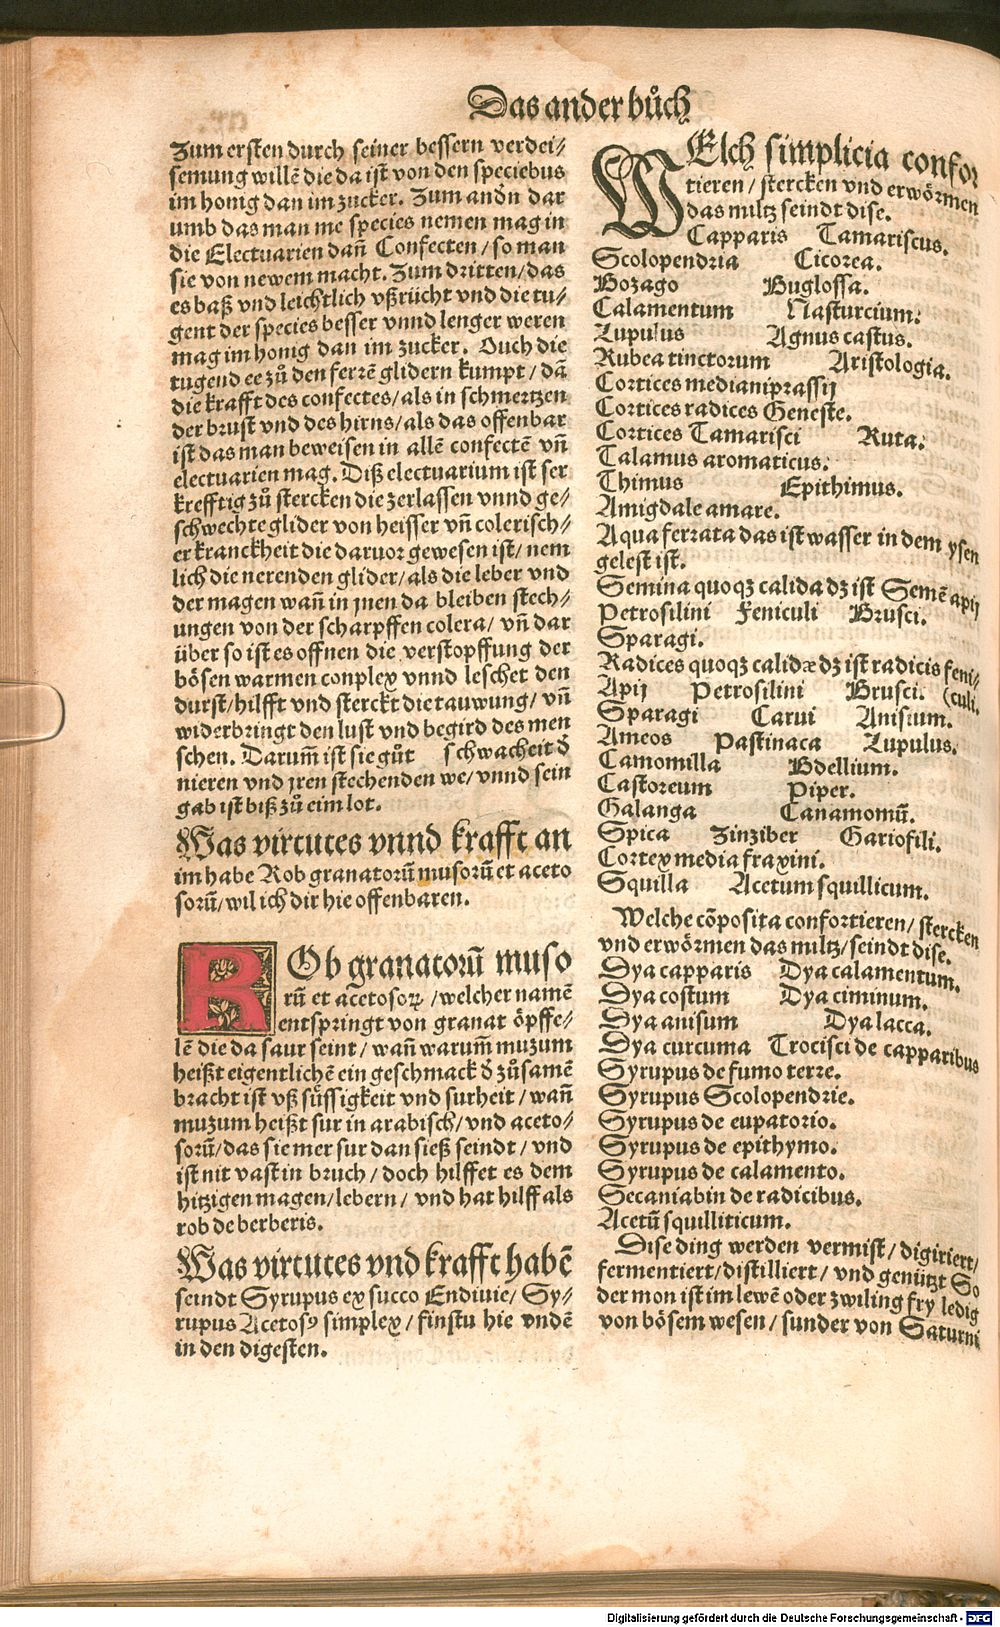 Das ander bůch
Zum ersten durch seiner bessern verdei⸗
semung willē die da ist von den speciebus
im honig dan im zucker. Zum andn̄ dar
umb das man me species nemen mag in
die Electuarien dañ Confecten / so man
sie von newem macht. Zum dritten / das
es baß vnd leichtlich vßrücht vnd die tu⸗
gent der species besser vnnd lenger weren
mag im honig dan im zucker. Ouch die
tugend ee zů den ferrē glidern kumpt / dā
die krafft des confectes / als in schmertzen
der brust vnd des hirns / als das offenbar
ist das man beweisen in allē confectē vñ
electuarien mag. Diß electuarium ist ser
krefftig zů stercken die zerlassen vnnd ge⸗
schwechte glider von heisser vñ colerisch⸗
er kranckheit die daruor gewesen ist / nem
lich die nerenden glider / als die leber vnd
der magen wañ in jnen da bleiben stech⸗
ungen von der scharpffen colera / vñ dar
über so ist es offnen die verstopffung der
bösen warmen conplex vnnd leschet den
durst / hilfft vnd sterckt die tauwung / vñ
widerbringt den lust vnd begird des men
schen. Darum̄ ist sie gůt schwacheit d̄
nieren vnd jren stechenden we / vnnd sein
gab ist biß zů eim lot.
Was virtutes vnnd krafft an
im habe Rob granatorū musorū et aceto
sorū / wil ich dir hie offenbaren.
ROb granatorū muso
rū et acetosoꝝ / welcher namē
entspringt von granat öpffe⸗
lē die da saur seint / wañ warum̄ muzum
heißt eigentlichē ein geschmack d̄ zůsamē
bracht ist vß süssigkeit vnd surheit / wañ
muzum heißt sur in arabisch / vnd aceto⸗
sorū / das sie mer sur dan sieß seindt / vnd
ist nit vast in bruch / doch hilffet es dem
hitzigen magen / lebern / vnd hat hilff als
rob de berberis.
Was virtutes vnd krafft habē
seindt Syrupus ex succo Endiuie / Sy⸗
rupus Acetosꝰ simplex / finstu hie vndē
in den digesten.
WElch simplicia confor
tieren / stercken vnd erwörmen
das miltz seindt dise.
Capparis Tamariscus.
Scolopendria Cicorea.
Bozago Buglossa.
Calamentum Nasturcium.
Lupulus Agnus castus.
Rubea tinctorum Aristologia.
Cortices medianiprassij
Cortices radices Geneste.
Cortices Tamarisci Ruta.
Calamus aromaticus.
Thimus Epithimus.
Amigdale amare.
Aqua ferrata das ist wasser in dem ysen
gelest ist.
Semina quoqꝫ calida dz ist Semē apij
Petrosilini Feniculi Brusci.
Sparagi.
Radices quoqꝫ calidæ dz ist radicis feni⸗
Apij Petrosilini Brusci. (culi.
Sparagi Carui Anisium.
Ameos Pastinaca Lupulus.
Camomilla Bdellium.
Castoreum Piper.
Galanga Canamomū.
Spica Zinziber Gariofili.
Cortex media fraxini.
Squilla Acetum squillicum.
Welche cōposita confortieren / stercken
vnd erwörmen das miltz / seindt dise.
Dya capparis Dya calamentum.
Dya costum Dya ciminum.
Dya anisum Dya lacca.
Dya curcuma Trocisci de capparibus
Syrupus de fumo terre.
Syrupus Scolopendrie.
Syrupus de eupatorio.
Syrupus de epithymo.
Syrupus de calamento.
Secaniabin de radicibus.
Acetū squilliticum.
Dise ding werden vermist / digiriert /
fermentiert / distilliert / vnd genützt So
der mon ist im lewē oder zwiling fry ledig
von bösem wesen / sunder von Saturni
Digitalisierung gefördert durch die Deutsche Forschungsgemeinschaft - DFG